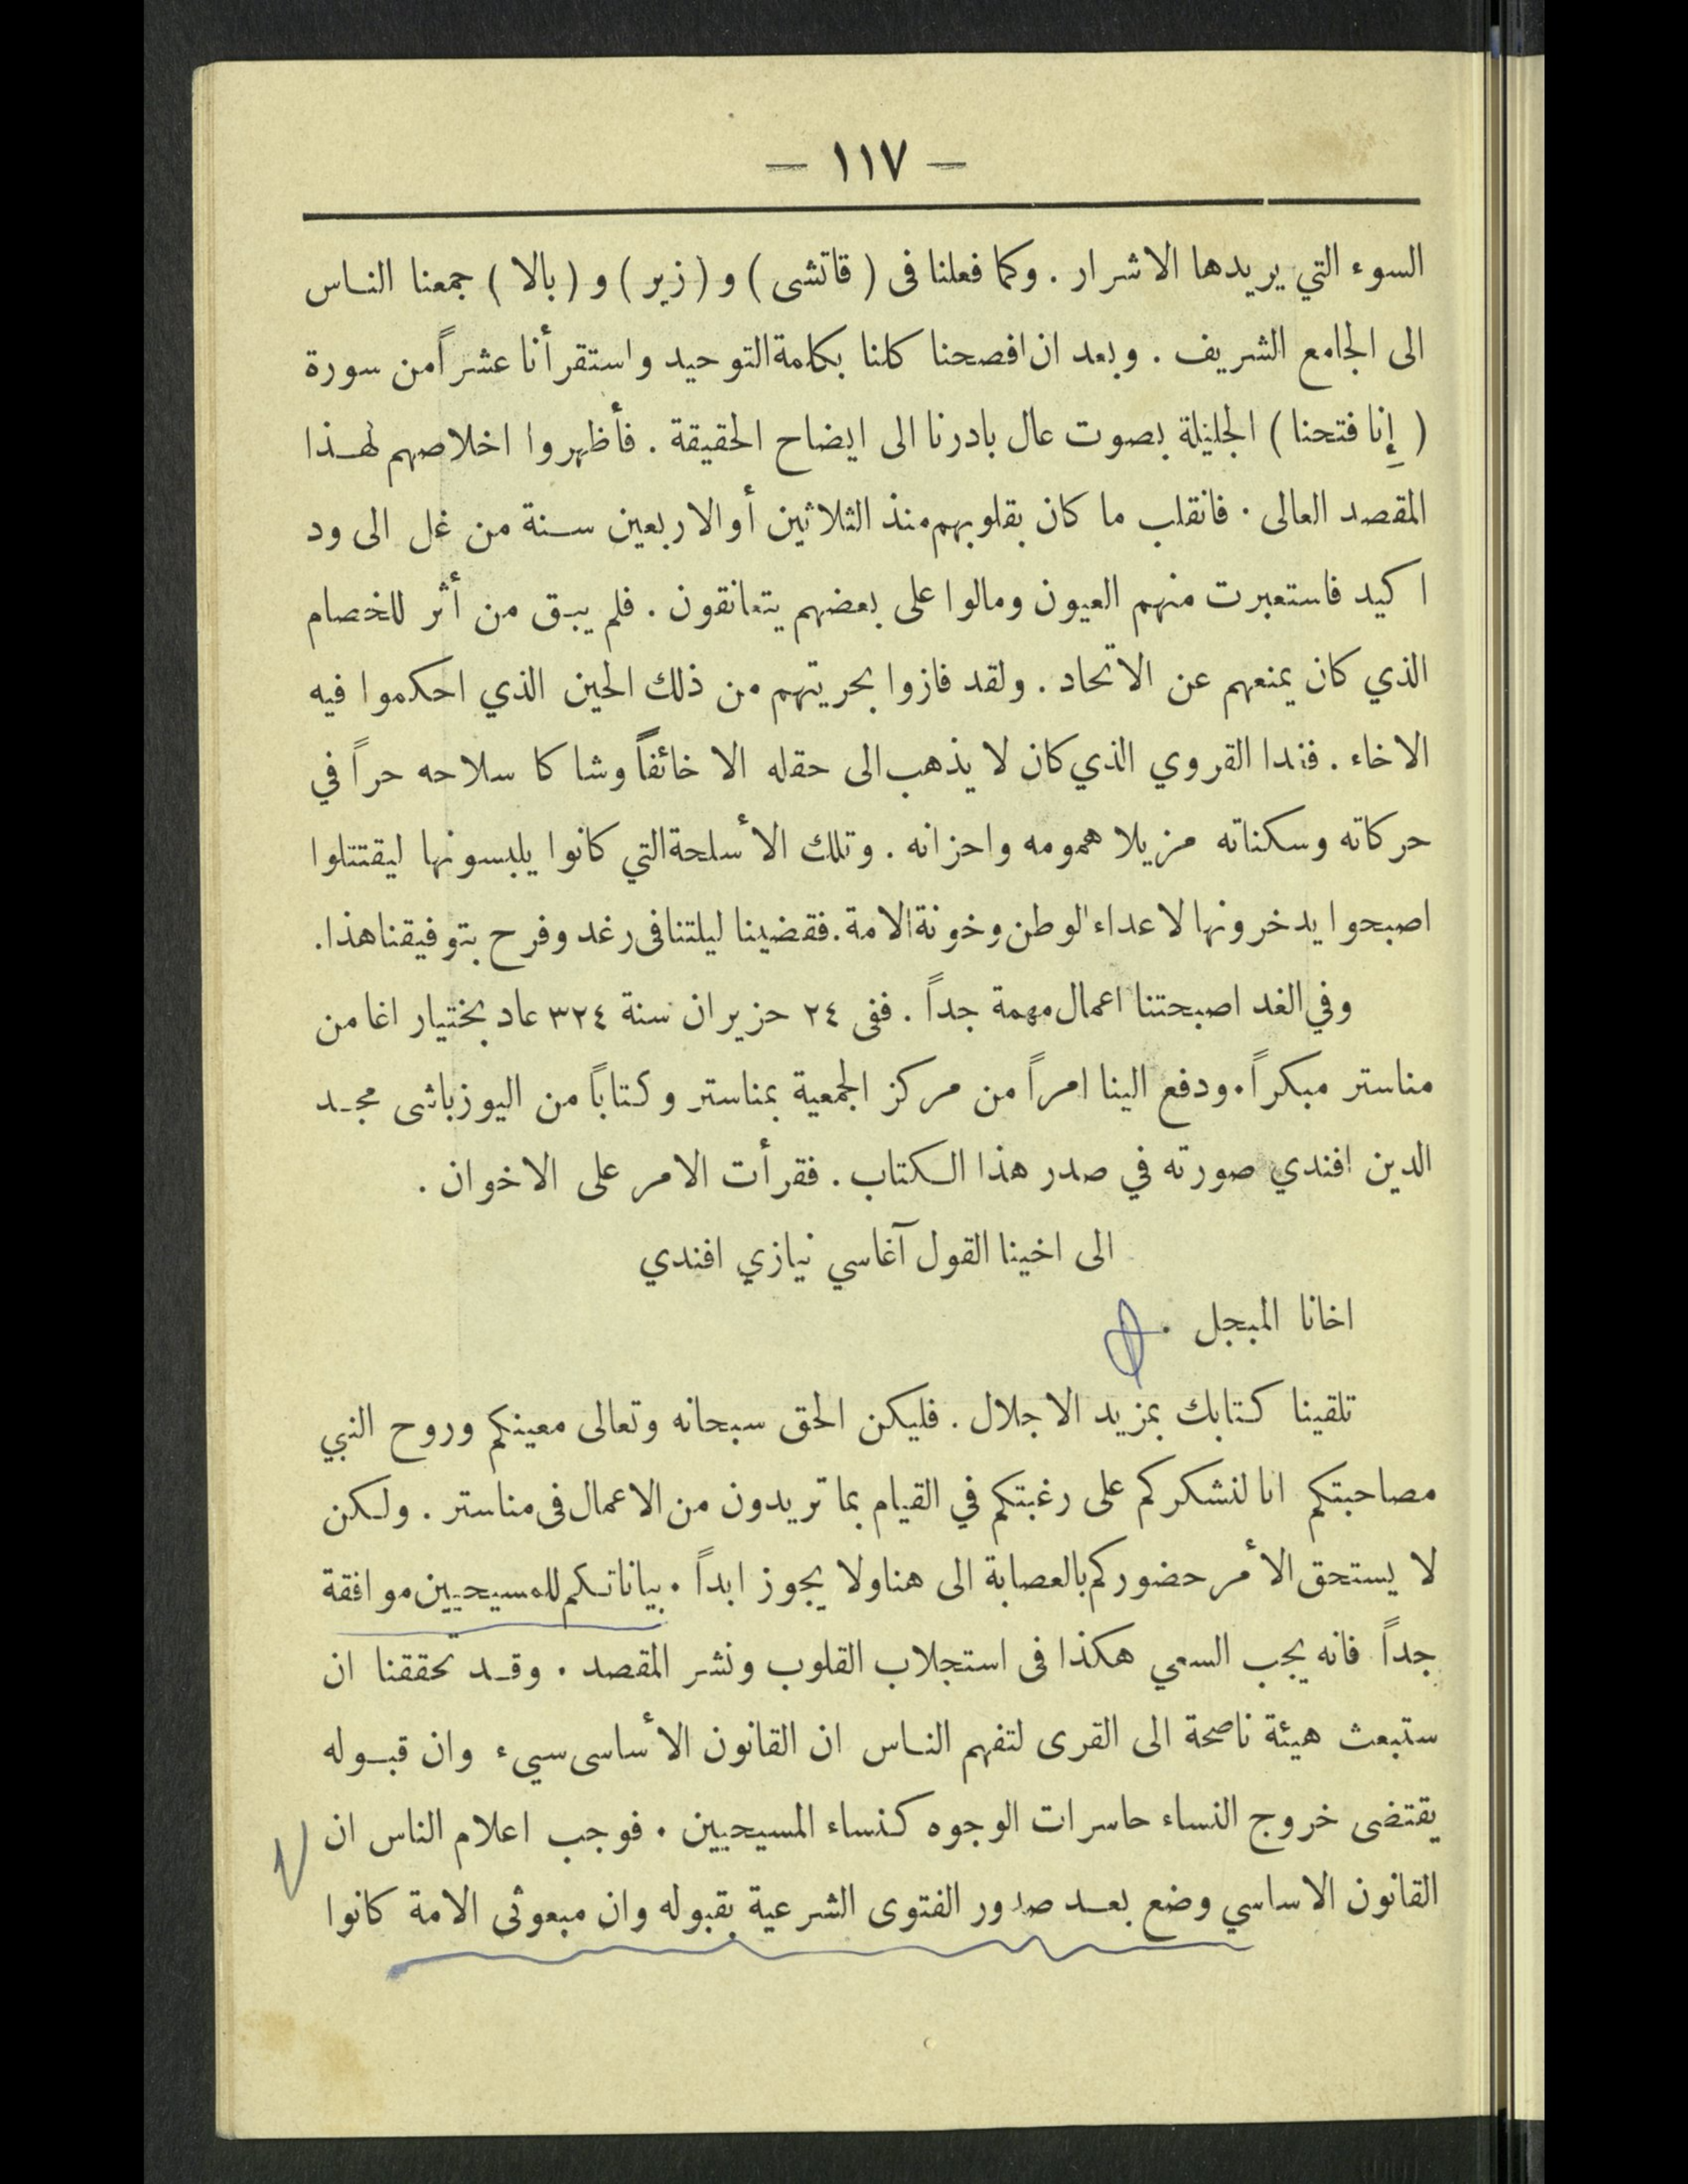 — ١١٧ —
السوء التي يريدها الاشرار . وكما فعلنا فى ( قاتشى ) و ( زير ) و ( بالا ) جمعنا الناس
الى الجامع الشريف . وبعد ان افصحنا كلنا بكلمة التوحيد واستقرأنا عشراً من سورة
( إِنا فتحنا ) الجليلة بصوت عال بادرنا الى ايضاح الحقيقة . فأظهروا اخلاصهم لهذا
المقصد العالى . فانقلب ما كان بقلوبهم منذ الثلاثين أو الاربعين سنة من غل الى ود
اكيد فاستعبرت منهم العيون ومالوا على بعضهم يتعانقون . فلم يبق من أثر للخصام
الذي كان يمنعهم عن الاتحاد . ولقد فازوا بحريتهم من ذلك الحين الذي احكموا فيه
الاخاء . فغدا القروي الذي كان لا يذهب الى حقله الا خائفاً وشاكا سلاحه حراً في
حركاته وسكناته مزيلا همومه واحزانه . وتلك الأسلحة التي كانوا يلبسونها ليقتتلوا
اصبحوا يدخرونها لاعداء الوطن وخونة الامة . فقضينا ليلتنا فى رغد وفرح بتوفيقنا هذا .
وفي الغد اصبحتنا اعمال مهمة جداً . ففى ٢٤ حزيران سنة ٣٢٤ عاد بختيار اغا من
مناستر مبكراً . ودفع الينا امراً من مركز الجمعية بمناستر وكتاباً من اليوزباشى مجد
الدين افندي صورته في صدر هذا الكتاب . فقرأت الامر على الاخوان .
الى اخينا القول آغاسي نيازي افندي
اخانا المبجل .
تلقينا كتابك بمزيد الاجلال . فليكن الحق سبحانه وتعالى معينكم وروح النبي
مصاحبتكم انا لنشكركم على رغبتكم في القيام بما تريدون من الاعمال فى مناستر . ولكن
لا يستحق الأمر حضوركم بالعصابة الى هنا ولا يجوز ابداً . بياناتكم للمسيحيين موافقة
جداً فانه يجب السعي هكذا فى استجلاب القلوب ونشر المقصد . وقد تحققنا ان
ستبعث هيئة ناصحة الى القرى لتفهم الناس ان القانون الأساسى سيء وان قبوله
يقتضى خروج النساء حاسرات الوجوه كنساء المسيحيين . فوجب اعلام الناس ان
القانون الاساسي وضع بعد صدور الفتوى الشرعية بقبوله وان مبعوثى الامة كانوا